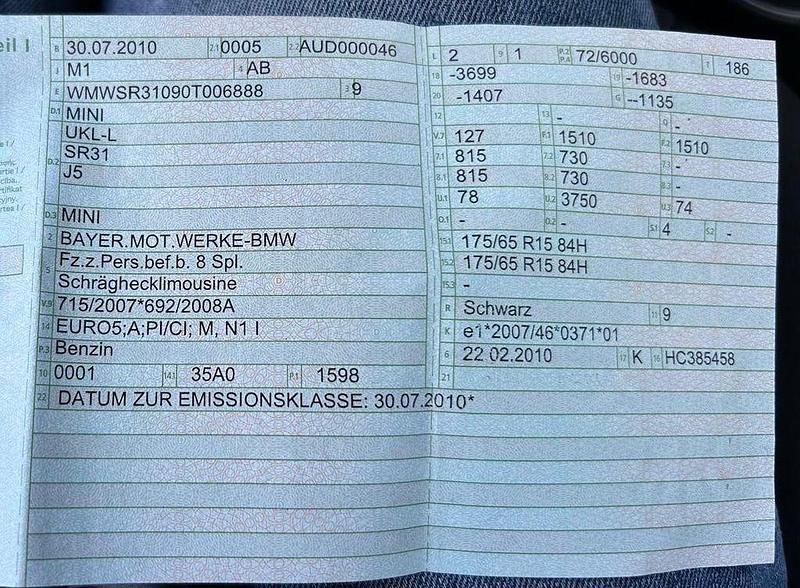 eil I
B 30.07.2010 2.1 0005 2.2 AUD000046
J M1 4 AB
E WMWSR31090T006888 3 9
D.1 MINI
UKL-L
D.2 SR31
J5
D.3 MINI
2 BAYER.MOT.WERKE-BMW
5 Fz.z.Pers.bef.b. 8 Spl.
Schräghecklimousine
V.9 715/2007*692/2008A
14 EURO5;A;PI/CI; M, N1 I
P.3 Benzin
10 0001 14.1 35A0 P.1 1598
22 DATUM ZUR EMISSIONSKLASSE: 30.07.2010*
L 2 9 1 P.2 P.4 72/6000 T 186
18 -3699 19 -1683
20 -1407 G --1135
12 13 - Q -
V.7 127 F.1 1510 F.2 1510
7.1 815 7.2 730 7.3 -
8.1 815 8.2 730 8.3 -
U.1 78 U.2 3750 U.3 74
O.1 - O.2 - S.1 4 S.2 -
15.1 175/65 R15 84H
15.2 175/65 R15 84H
15.3 -
R Schwarz 11 9
K e1*2007/46*0371*01
6 22.02.2010 17 K 16 HC385458
21